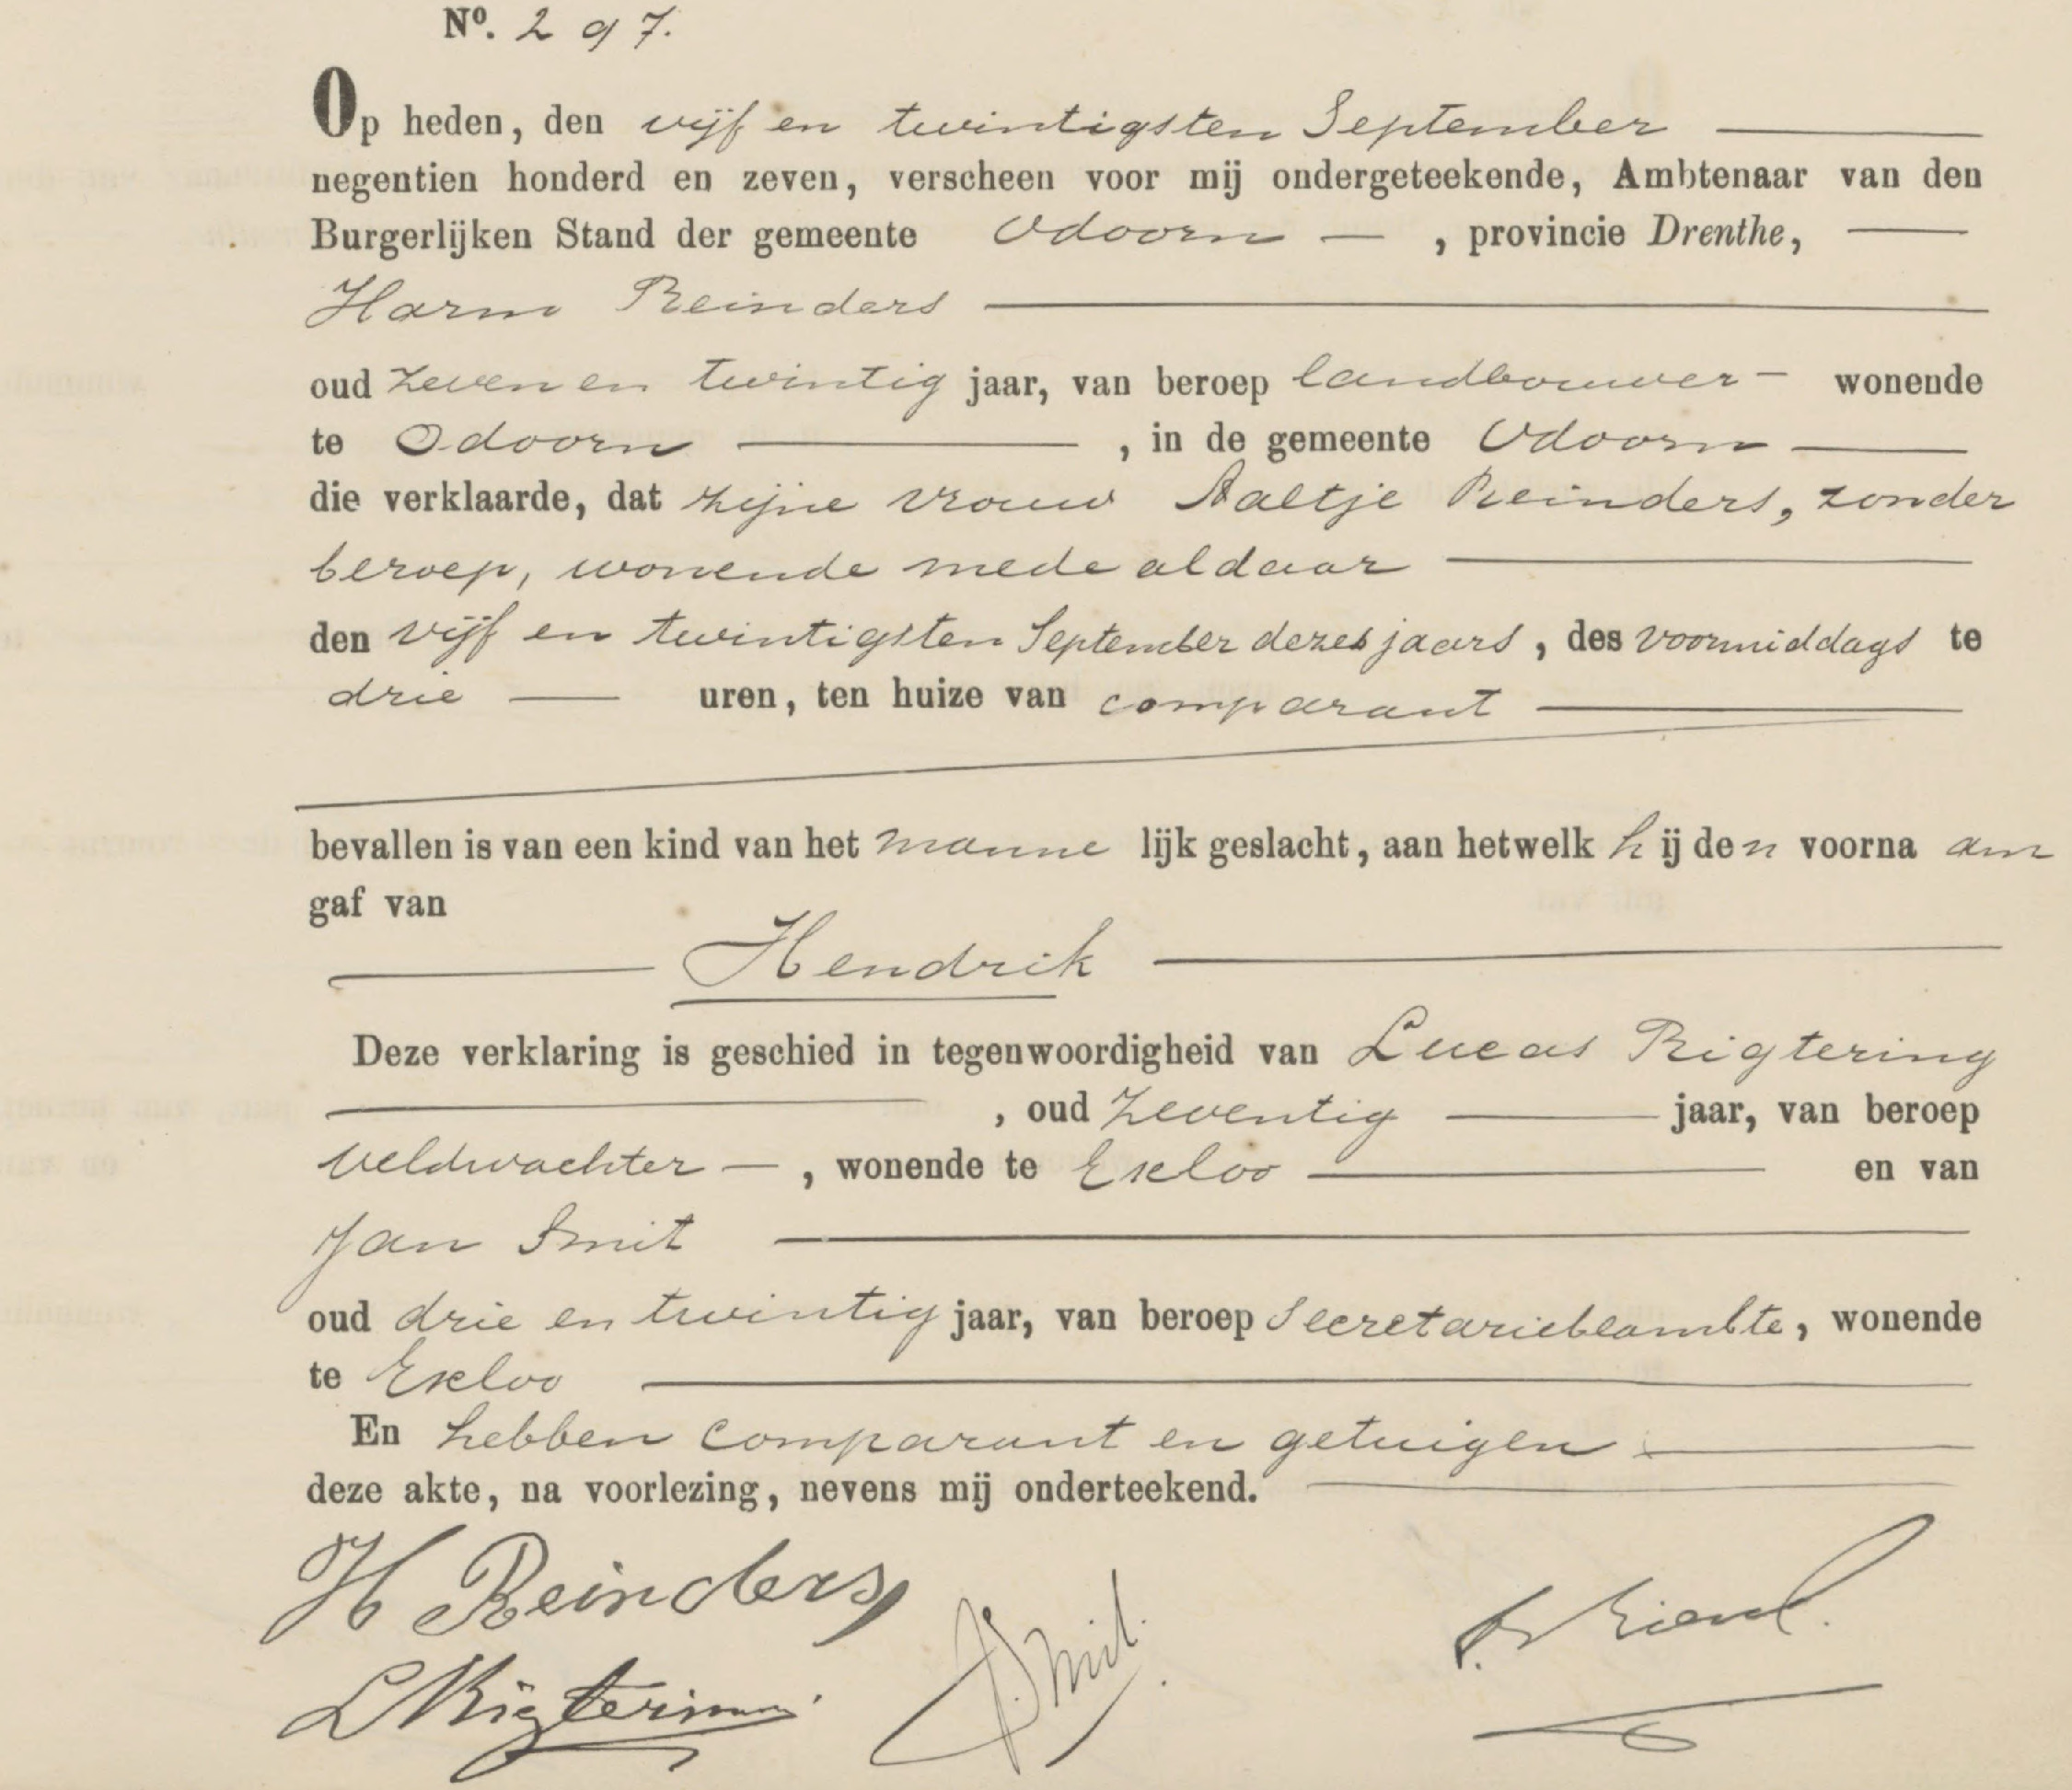 Nº. 297.
Op heden, den vijf en twintigsten September
negentien honderd en zeven, verscheen voor mij ondergeteekende, Ambtenaar van den
Burgerlijken Stand der gemeente Odoorn, provincie Drenthe,
Harm Reinders
oud zeven en twintig jaar, van beroep landbouwer wonende
te Odoorn, in de gemeente Odoorn
die verklaarde, dat zijne vrouw Aaltje Reinders, zonder
beroep, wonende mede aldaar
den vijf en twintigsten September dezes jaars, des voormiddags te
drie uren, ten huize van comparant
bevallen is van een kind van het mannelijk geslacht, aan hetwelk hij den voornaam
gaf van
Hendrik
Deze verklaring is geschied in tegenwoordigheid van Lucas Rigtering
, oud zeventig jaar, van beroep
veldwachter, wonende te Exloo en van
Jan Smit
oud drie en twintig jaar, van beroep secretariebeambte, wonende
te Exloo
En hebben comparant en getuigen
deze akte, na voorlezing, nevens mij onderteekend.
H Reinders
J. Smit.
L Rigtering